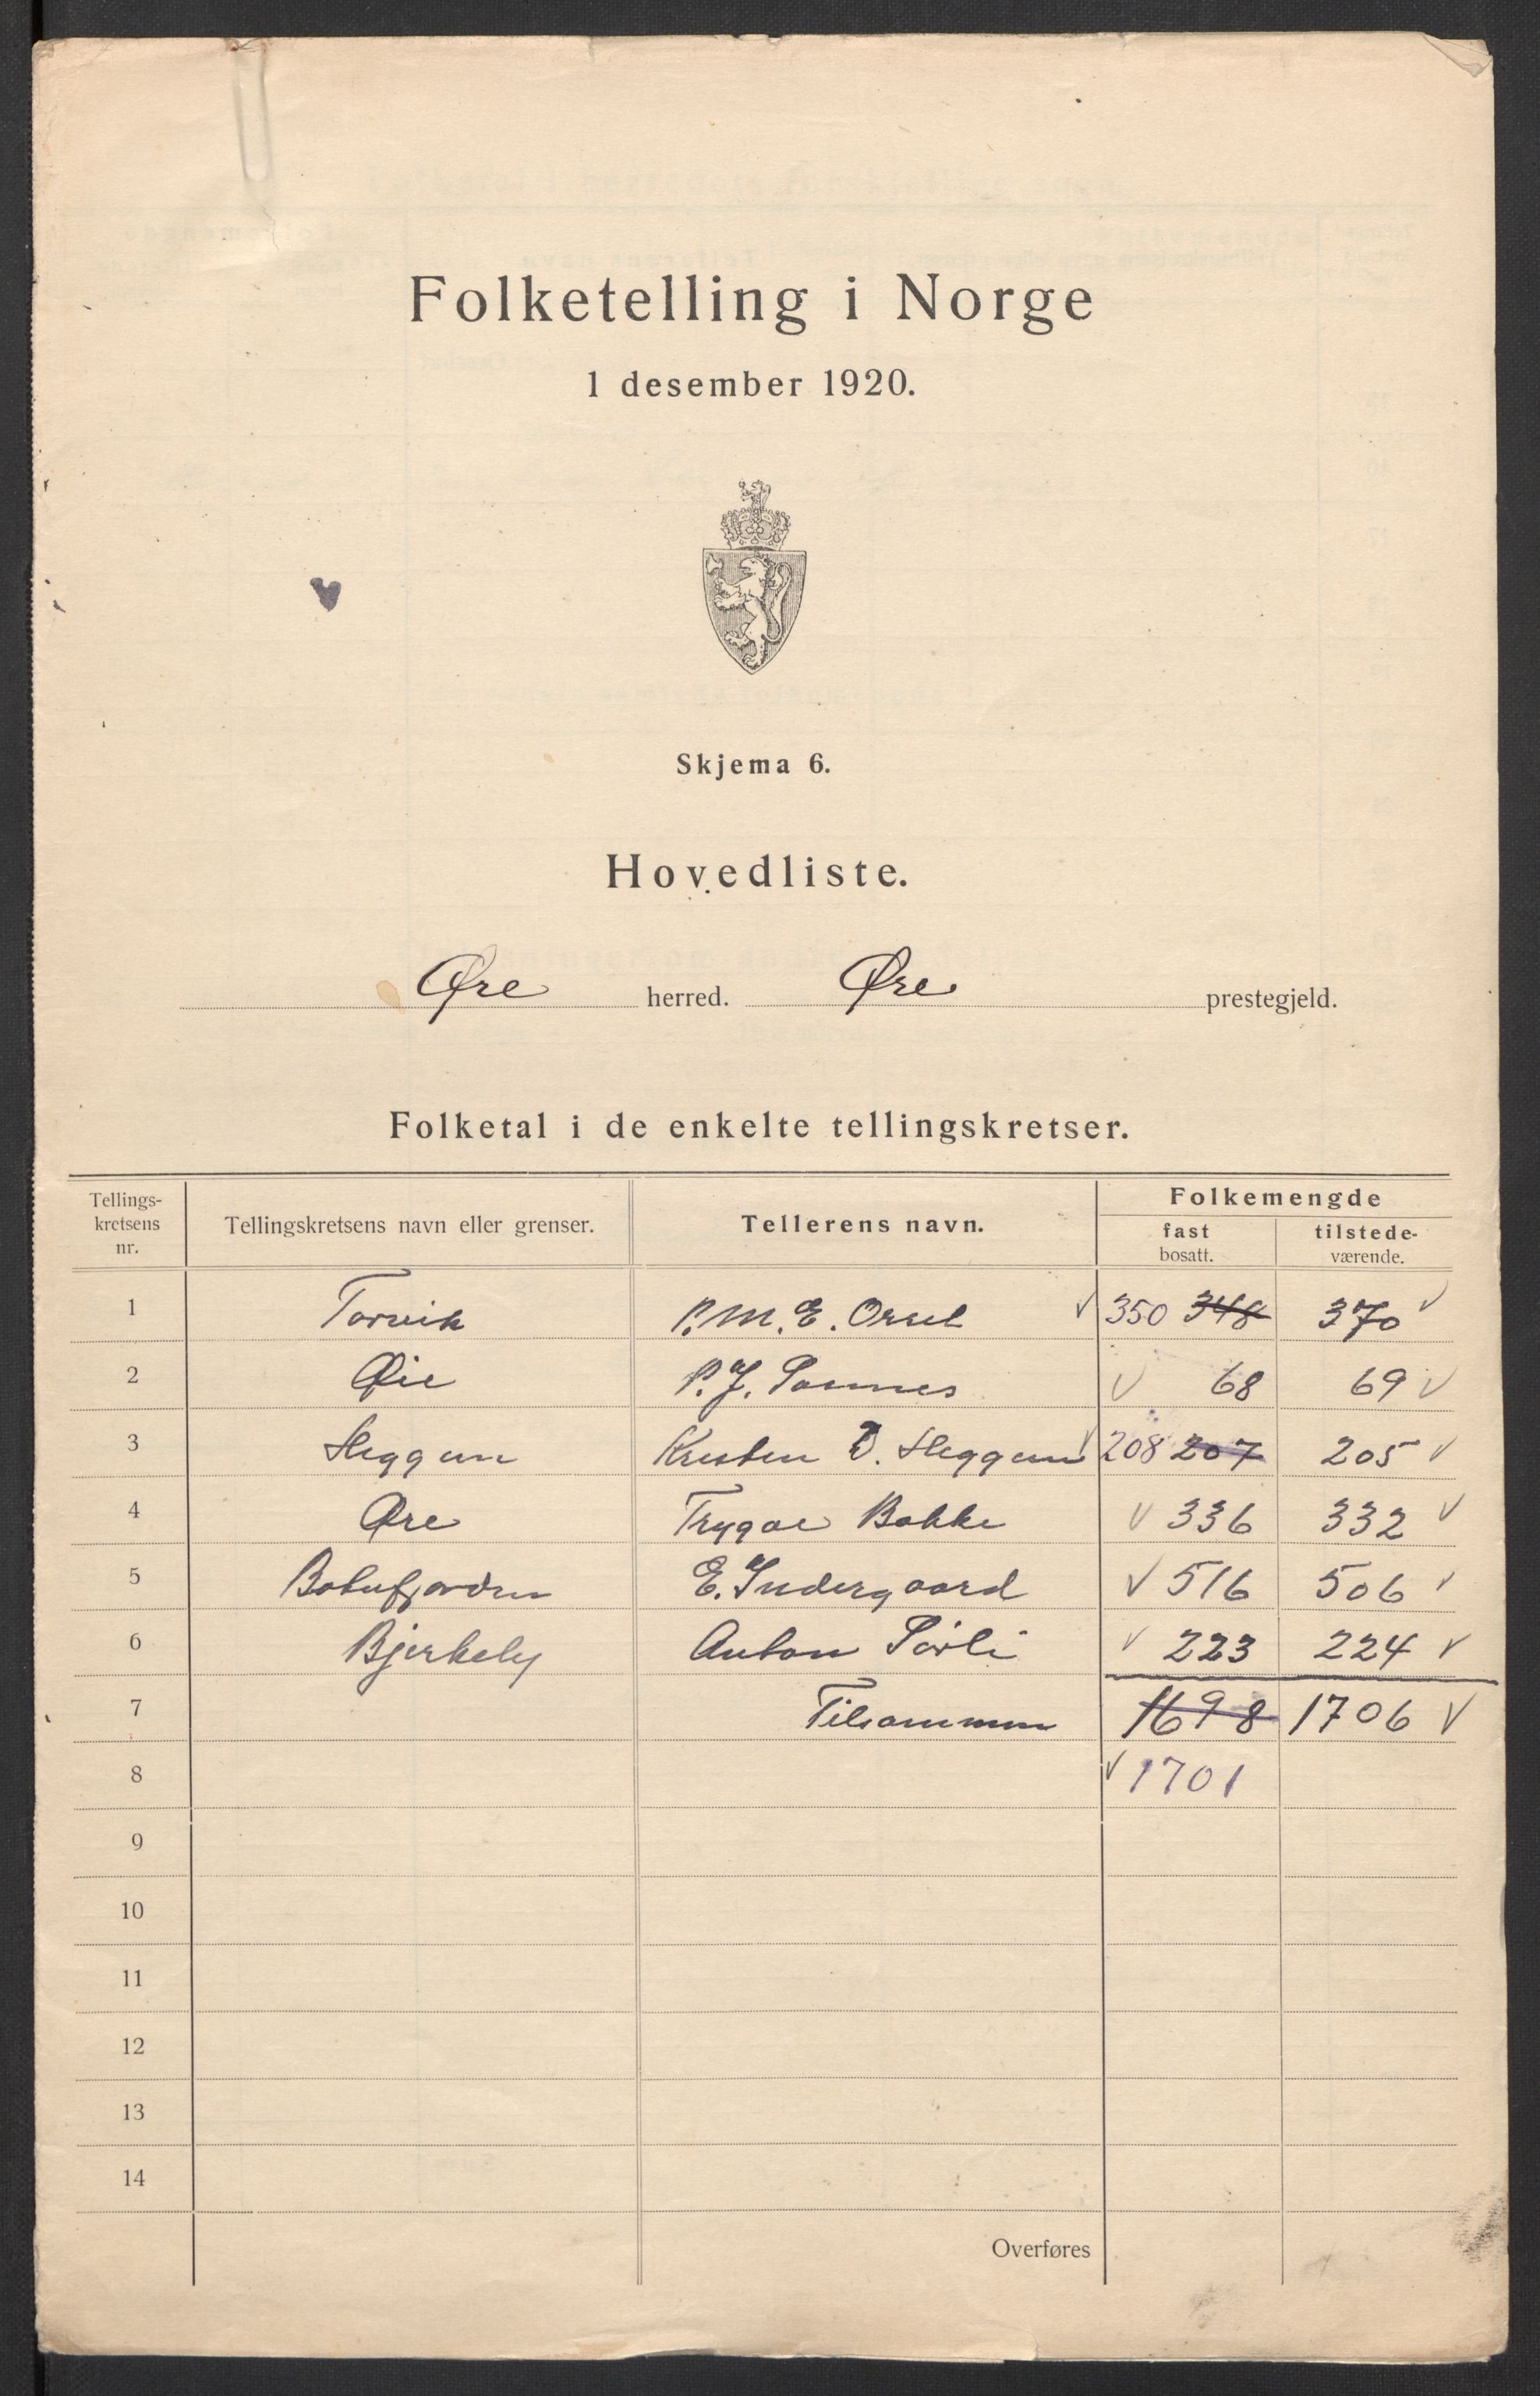 Folketelling i Norge
1 desember 1920.
Skjema 6.
Hovedliste.
Øre herred. Øre prestegjeld.
Folketal i de enkelte tellingskretser.
Tellings-kretsens nr. Tellingskretsens navn eller grenser. Tellerens navn. Folkemengde fast bosatt. tilstede-værende.
1 Torvik P. M. E. Orset √ 350 348 370 √
2 Øie P. J. √ 68 69 √
3 Heggem Kristen O. Heggem √ 208 207 205 √
4 Øre Trygve Bakke √ 336 332 √
5 Batnfjorden E. Indergaard √ 516 506 √
6 Bjerkely Anton √ 223 224 √
7 Tilsammen 1698 1706 √
8 √ 1701
9
10
11
12
13
14
Overføres